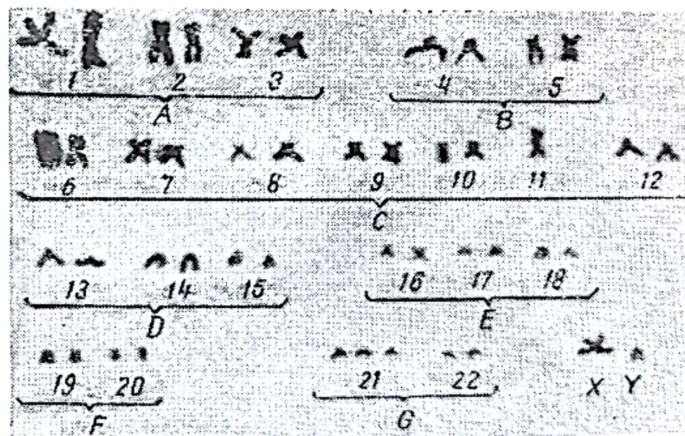 1 2 3 4 5
A B
6 7 8 9 10 11 12
C
13 14 15 16 17 18
D E
19 20 21 22 X Y
F G